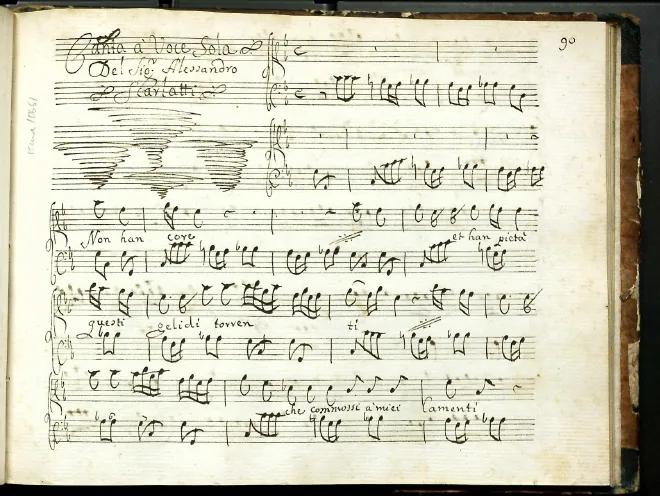 90
Canta à Voce Sola
Del Sig.r Alessandro
Scarlatti
Non han core et han pietà
questi gelidi torren ti
che commossi a' miei lamenti